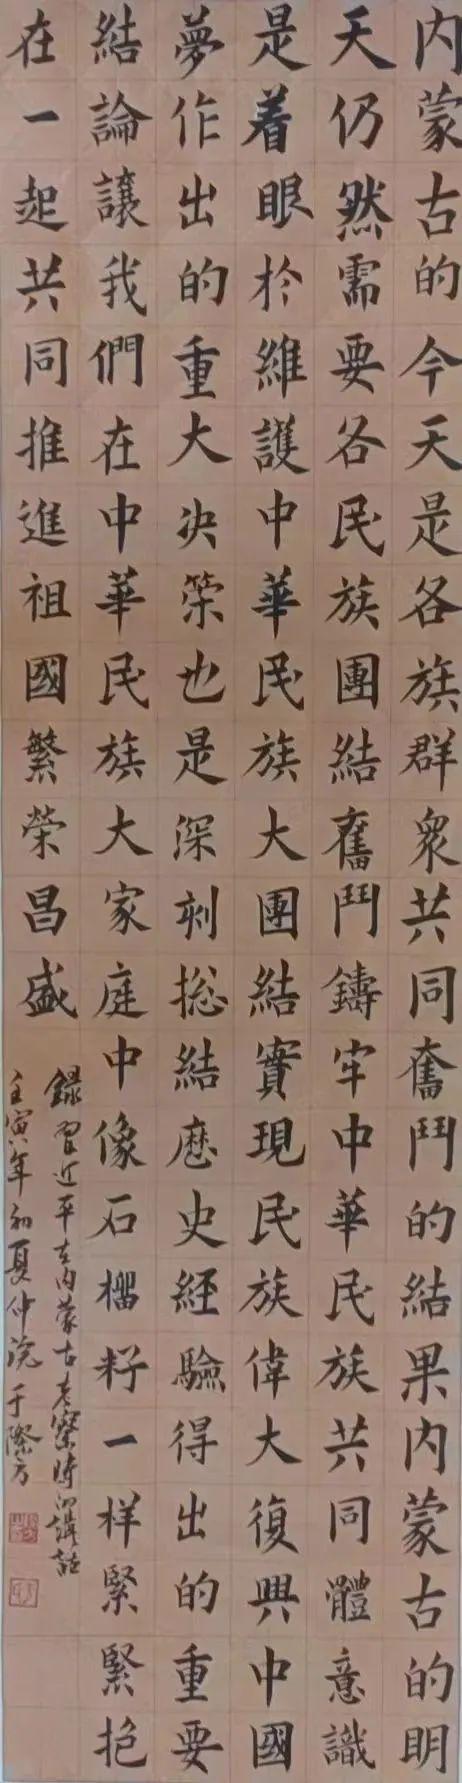 内蒙古的今天是各族群衆共同奮鬥的結果内蒙古的明
天仍然需要各民族團結奮鬥鑄牢中華民族共同體意識
是着眼於維護中華民族大團結實現民族偉大復興中國
夢作出的重大决策也是深刻総結歷史經驗得出的重要
結論讓我們在中華民族大家庭中像石榴籽一样緊緊抱
在一起共同推進祖國繁榮昌盛
録習近平在内蒙古考察時的講話
壬寅年初夏仲浣于際方